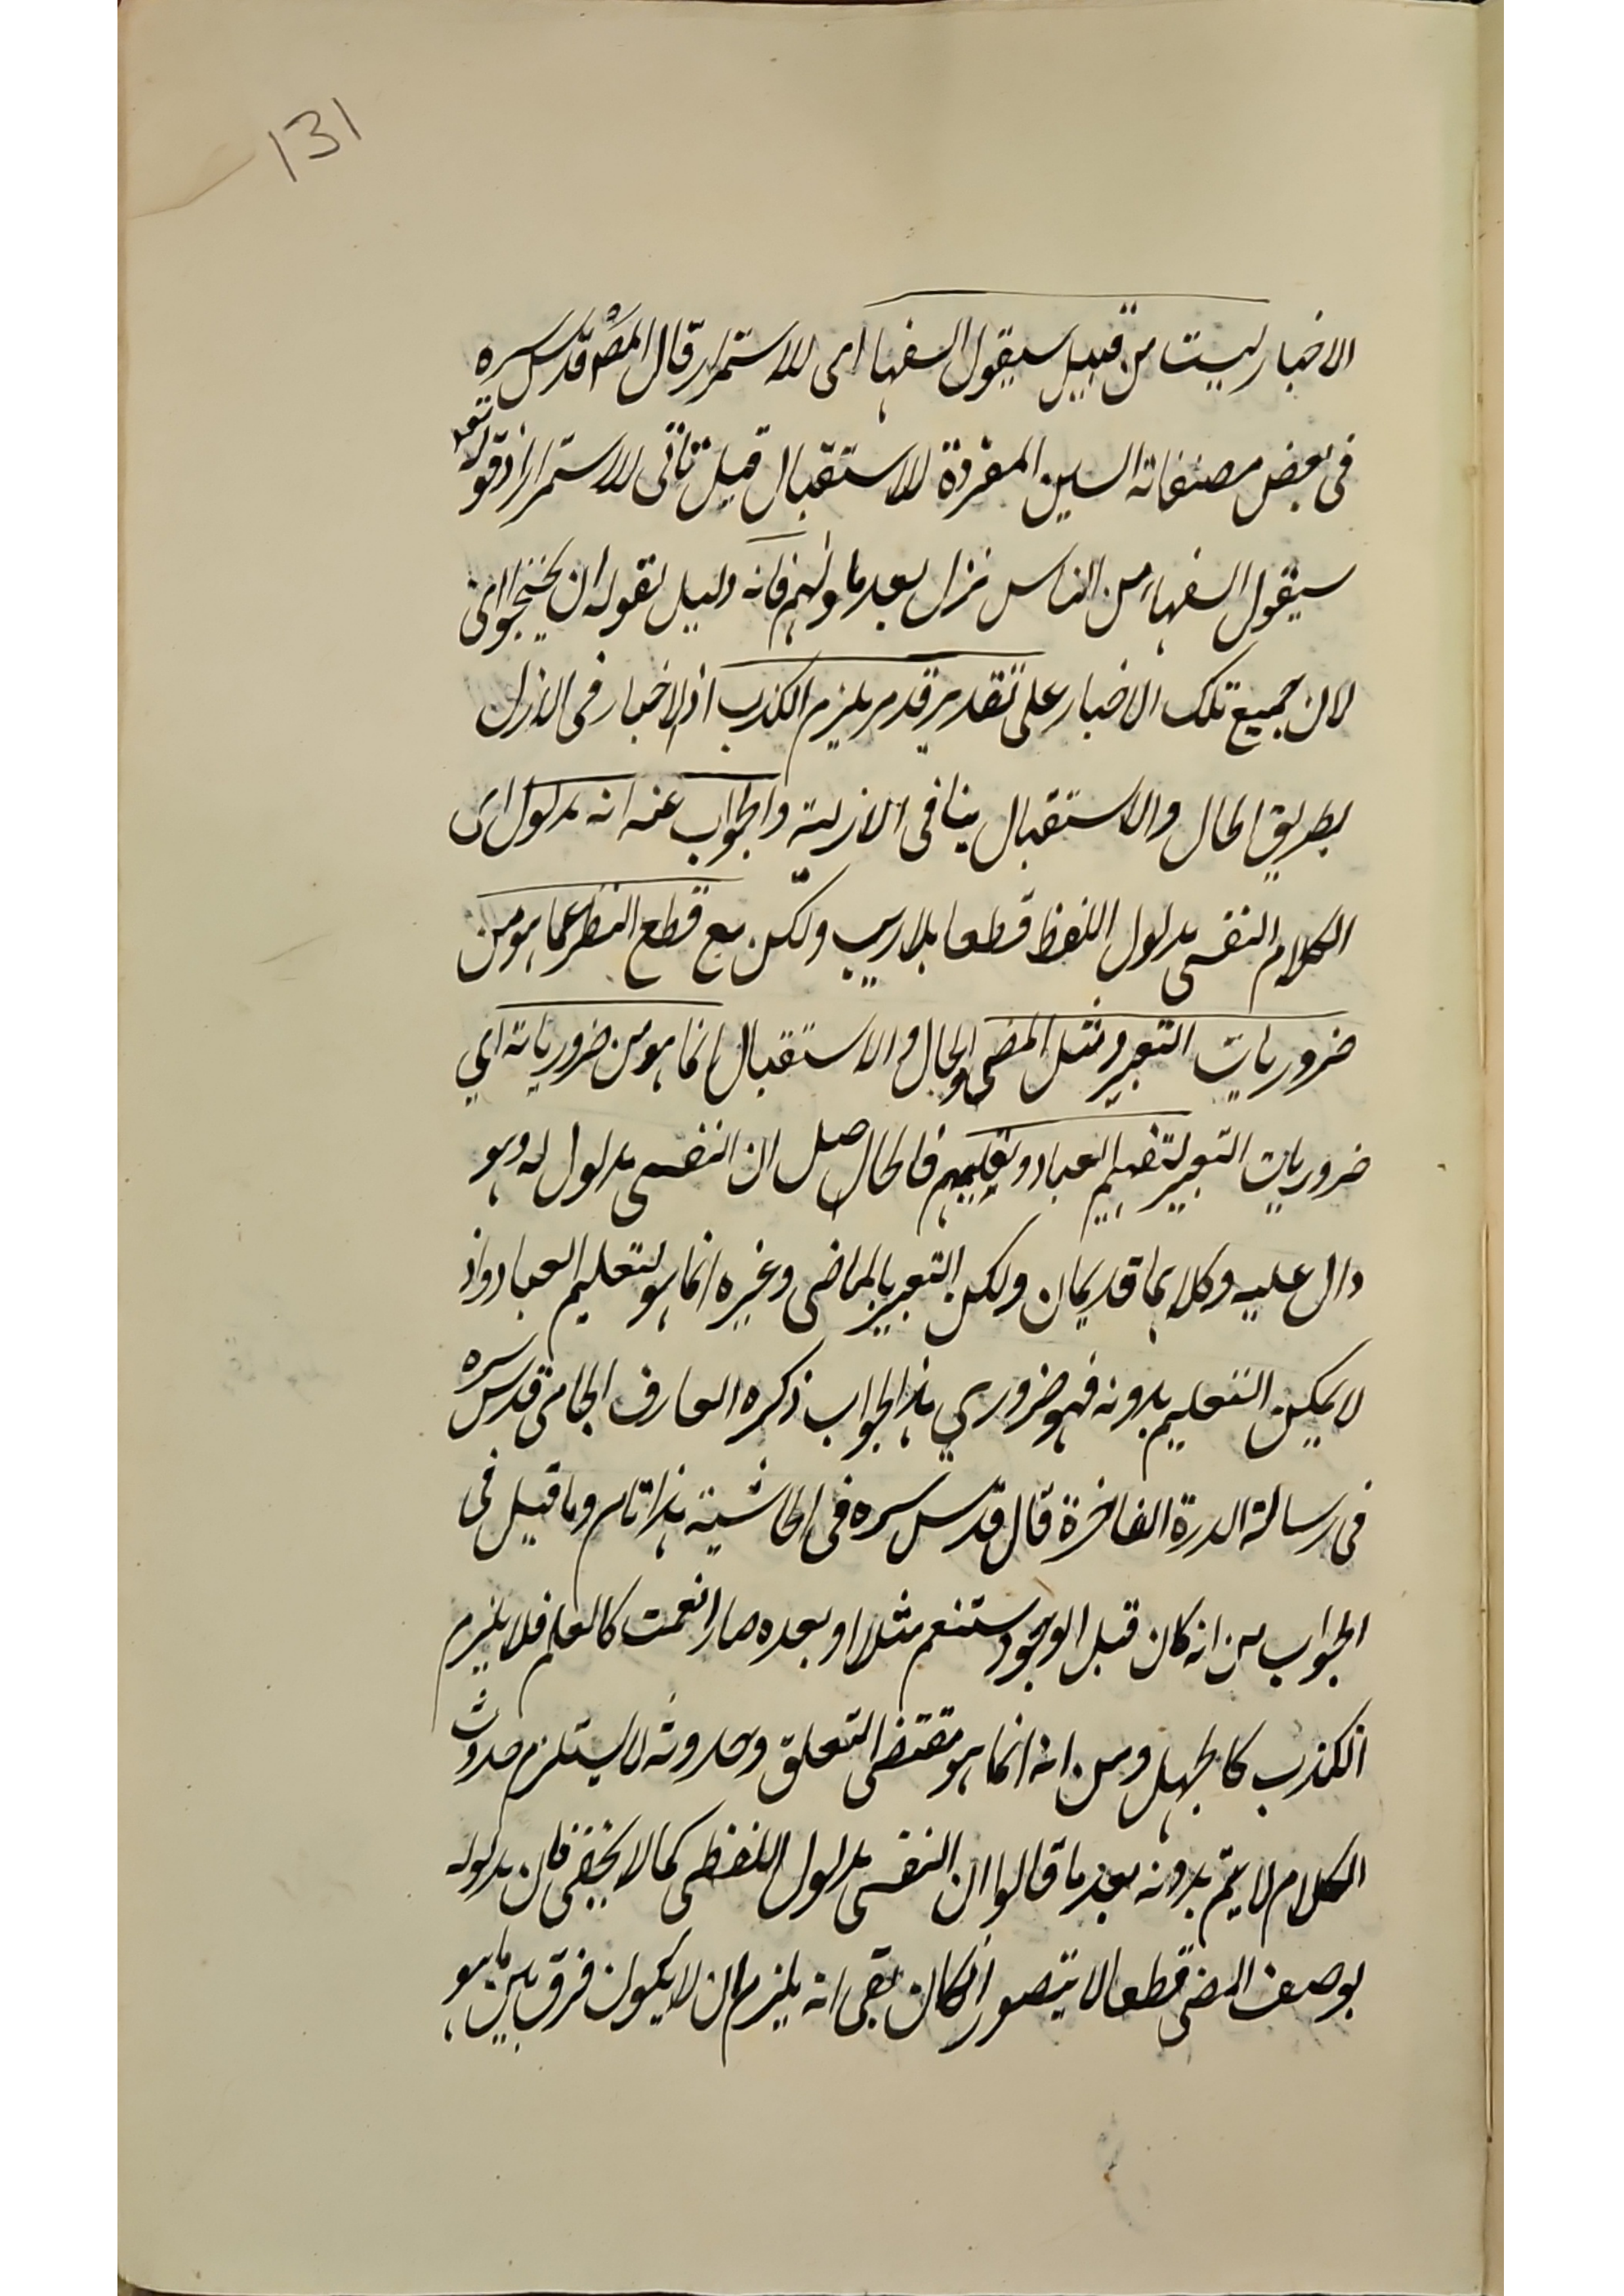 131
الاخبار ليست من قبيل سيقول السفها اى للاستمرار قال المص قدس سره
فى بعض مصنفاته السين المفردة للاستقبال قيل تاتى للاستمرار اذ قوله تع
سيقول السفهاء من الناس نزل بعد ما ولٰهم فانه دليل لقوله ان يحتجوا اى
لان جميع تلك الاخبار على تقدير قدم يلزم الكذب اذ الاخبار فى الازل
بطريق الحال والاستقبال ينافى الازلية والجواب عنه انه مدلول اى
الكلام النفسى مدلول اللفظ قطعا بلاريب ولكن مع قطع النظر عما هو من
ضروريات التعبير ومثل المضى والحال والاستقبال انما هو من ضرورياته اي
ضروريات التعبير لتفهيم العباد وتعليمهم فالحاصل ان النفسى مدلول له وهو
دال عليه وكلاهما قديمان ولكن التعبير بالماضى وغيره انما هو لتعليم العباد واذ
لا يمكن التعليم بدونه فهو ضروري هذا الجواب ذكره العارف الجامى قدس سره
فى رسالة الدرة الفاخرة قال قدس سره فى الحاشية هذا تام وما قيل فى
الجواب من انه كان قبل الوجود ستنعم مثلا او بعده صار انعمت كالعلم فلا يلزم
الكذب كالجهل ومن انه انما هو مقتضى التعلق وحدوثه لا يستلزم حدوث
الكلام لا يتم بدونه بعد ما قالوا ان النفسى مدلول اللفظى كما لا يخفى فان مدلوله
بوصف المضى قطعا لا يتصور اذ كان بقى انه يلزم ان لا يكون فرق بين ما هو